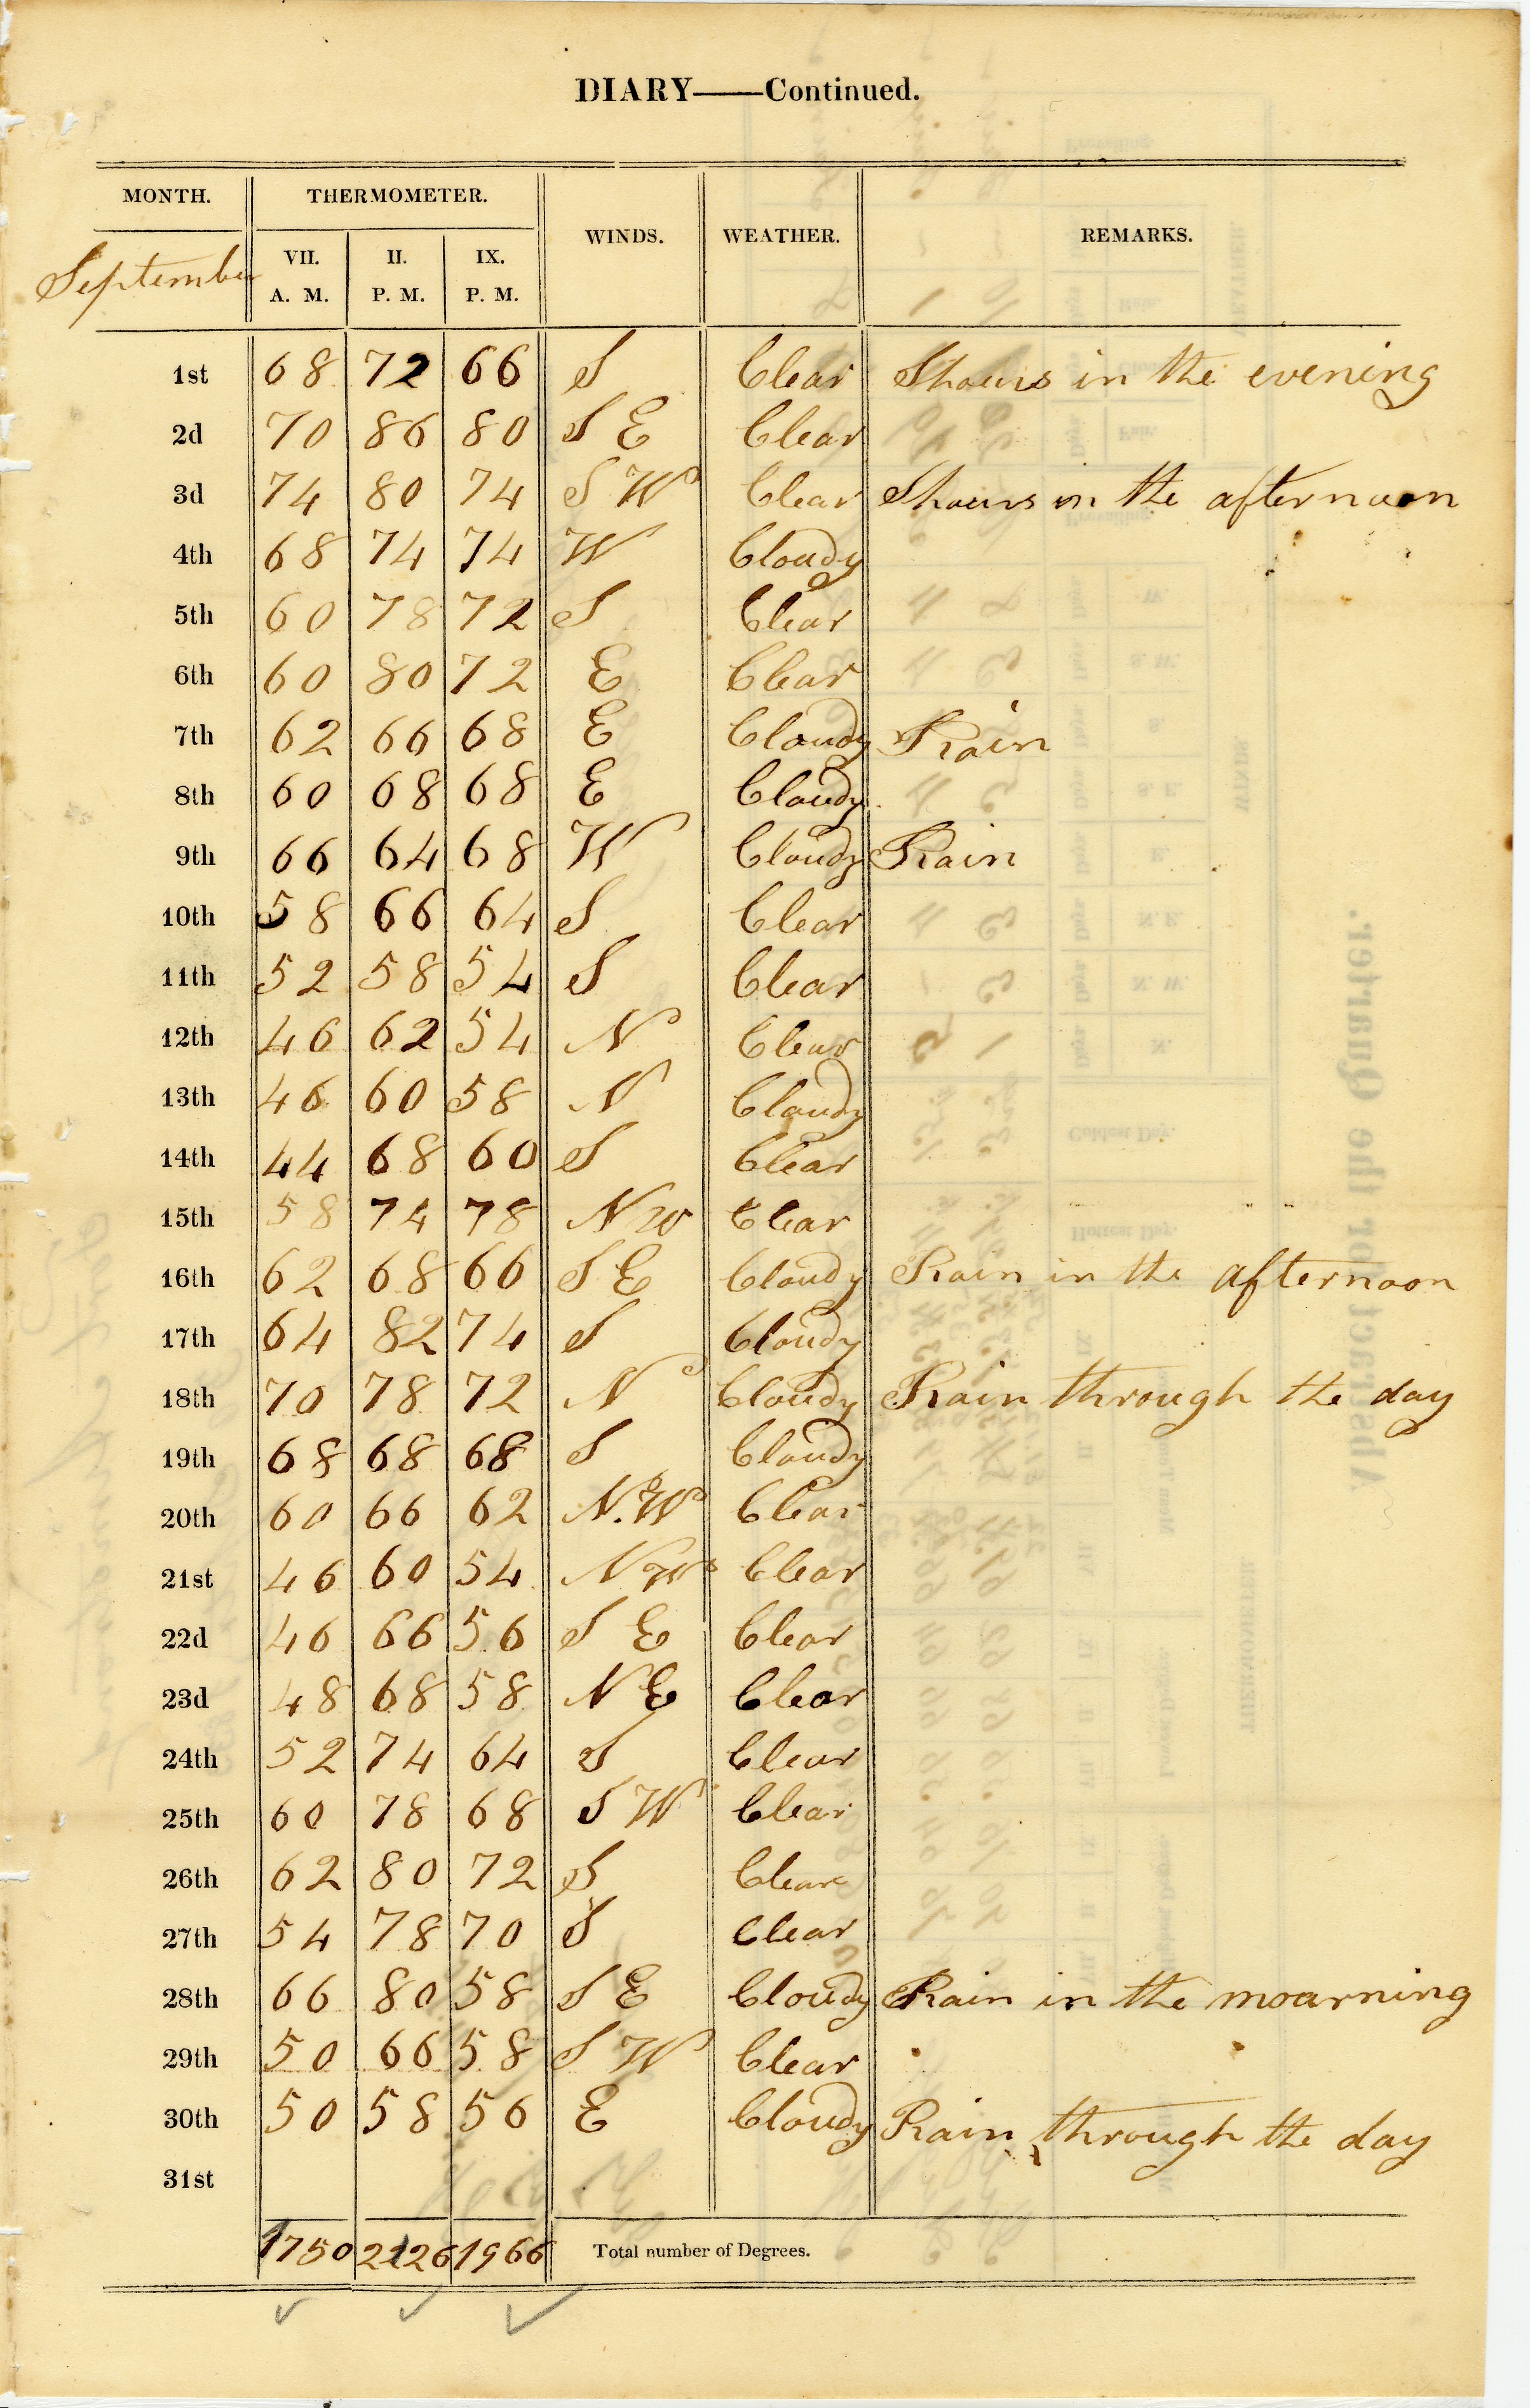 DIARY——Continued.
MONTH. THERMOMETER. WINDS. WEATHER. REMARKS.
September VII. A. M. II. P. M. IX. P. M.
1st 68 72 66 S Clear Shours in the evening
2d 70 86 80 S E Clear
3d 74 80 74 S W Clear Shours in the afternoon
4th 68 74 74 W Cloudy
5th 60 78 72 S Clear
6th 60 80 72 E Clear
7th 62 66 68 E Cloudy Rain
8th 60 68 68 E Cloudy
9th 66 64 68 W Cloudy Rain
10th 58 66 64 S Clear
11th 52 58 54 S Clear
12th 46 62 54 N Clear
13th 46 60 58 N Cloudy
14th 44 68 60 S Clear
15th 58 74 78 N W Clear
16th 62 68 66 S E Cloudy Rain in the afternoon
17th 64 82 74 S Cloudy
18th 70 78 72 N Cloudy Rain through the day
19th 68 68 68 S Cloudy
20th 60 66 62 N. W Clear
21st 46 60 54 N W Clear
22d 46 66 56 S E Clear
23d 48 68 58 N E Clear
24th 52 74 64 S Clear
25th 60 78 68 S W Clear
26th 62 80 72 S Clear
27th 54 78 70 S Clear
28th 66 80 58 S E Cloudy Rain in the moarning
29th 50 66 58 S W Clear
30th 50 58 56 E Cloudy Rain through the day
31st
1750 2126 1966 Total number of Degrees.